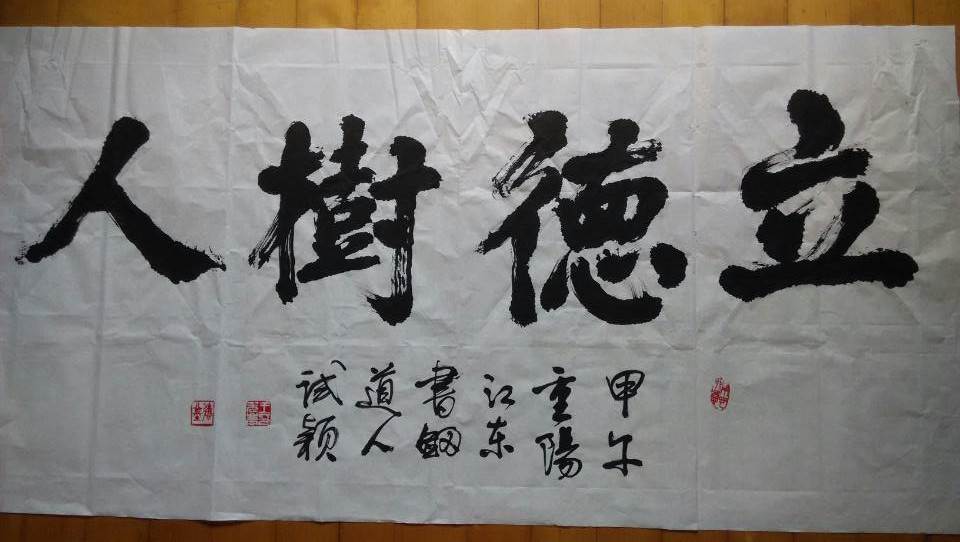 立德樹人
甲午
重陽
江东
書劔
道人
试颖